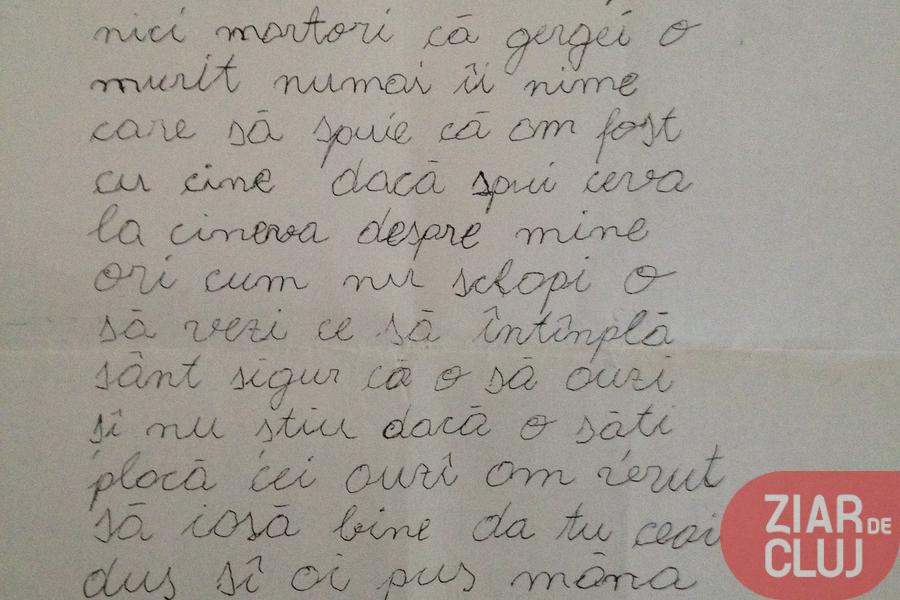 nici martori că gergei o
murit numai îi nime
care să spuie că am fost
cu cine dacă spui ceva
la cineva despre mine
ori cum nu sckapi o
să vezi ce să întînplă
sânt sigur că o să auzi
sî nu stiu dacă o săti
placă cei auzî am vrut
să iasă bine da tu ceai
dus sî ai pus mâna
ZIAR DE
CLUJ